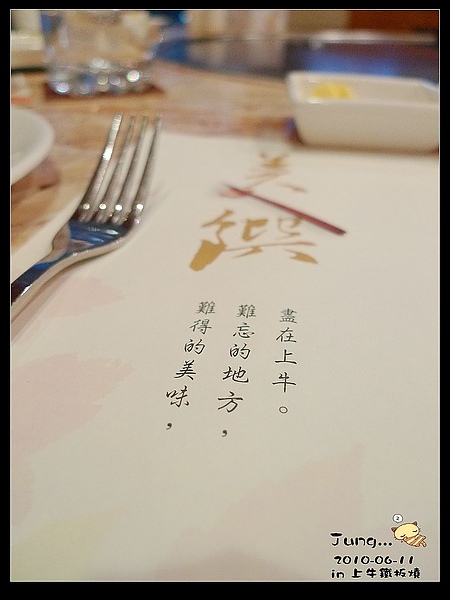 美饌
難得的美味，
難忘的地方，
盡在上牛。
Jung...
2010-06-11
in 上牛鐵板燒